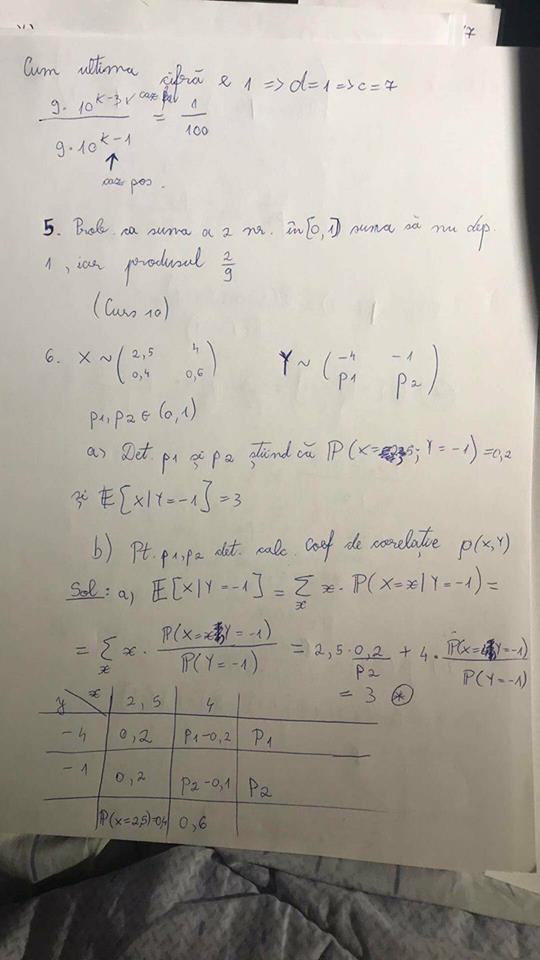 Cum ultima cifră e 1 => d=1 => c=7
9·10^{k-3} ← caz fav / 9·10^{k-1} = 1/100
↑
caz pos.
5. Prob. ca suma a 2 nr. în [0,1] suma să nu dep.
1, iar produsul 2/9
(Curs 10)
6. X ~ (2,5 4 / 0,4 0,6) Y ~ (-4 -1 / p1 p2)
p1, p2 ∈ (0,1)
a) Det. p1 și p2 știind că P(X=2,5; Y=-1)=0,2
și E[X|Y=-1]=3
b) Pt. p1, p2 det. calc. coef de corelație ρ(X,Y)
Sol: a) E[X|Y=-1] = Σ_x x·P(X=x|Y=-1) =
= Σ_x x· P(X=x; Y=-1) / P(Y=-1) = 2,5·0,2 / p2 + 4· P(X=4; Y=-1) / P(Y=-1)
= 3 ⊛
y \ x | 2,5 | 4
-4 | 0,2 | p1-0,2 | p1
-1 | 0,2 | p2-0,1 | p2
P(X=2,5)=0,4 | 0,6